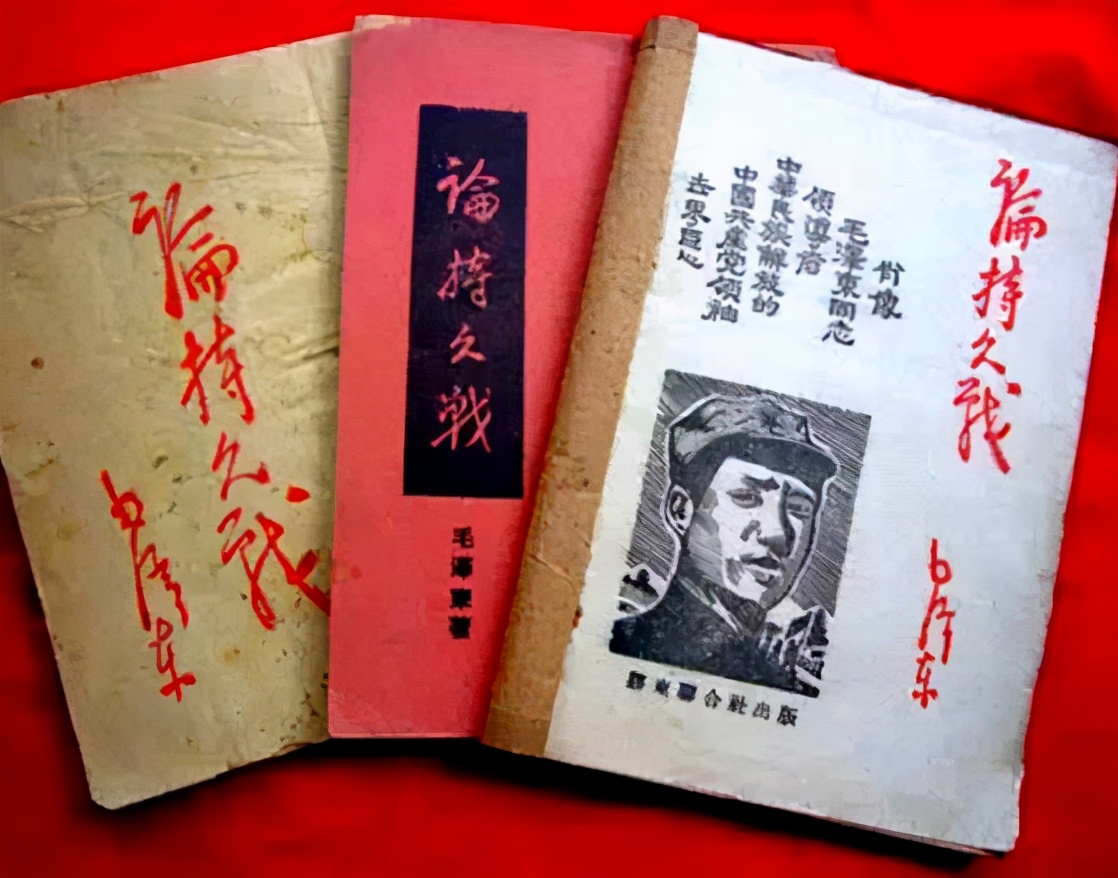 論持久战
毛泽东
論持久戰
毛澤東著
論持久战
毛泽东
肖像
毛澤東同志
領導者
中華民族解放的
中國共產党領袖
東聯合社出版